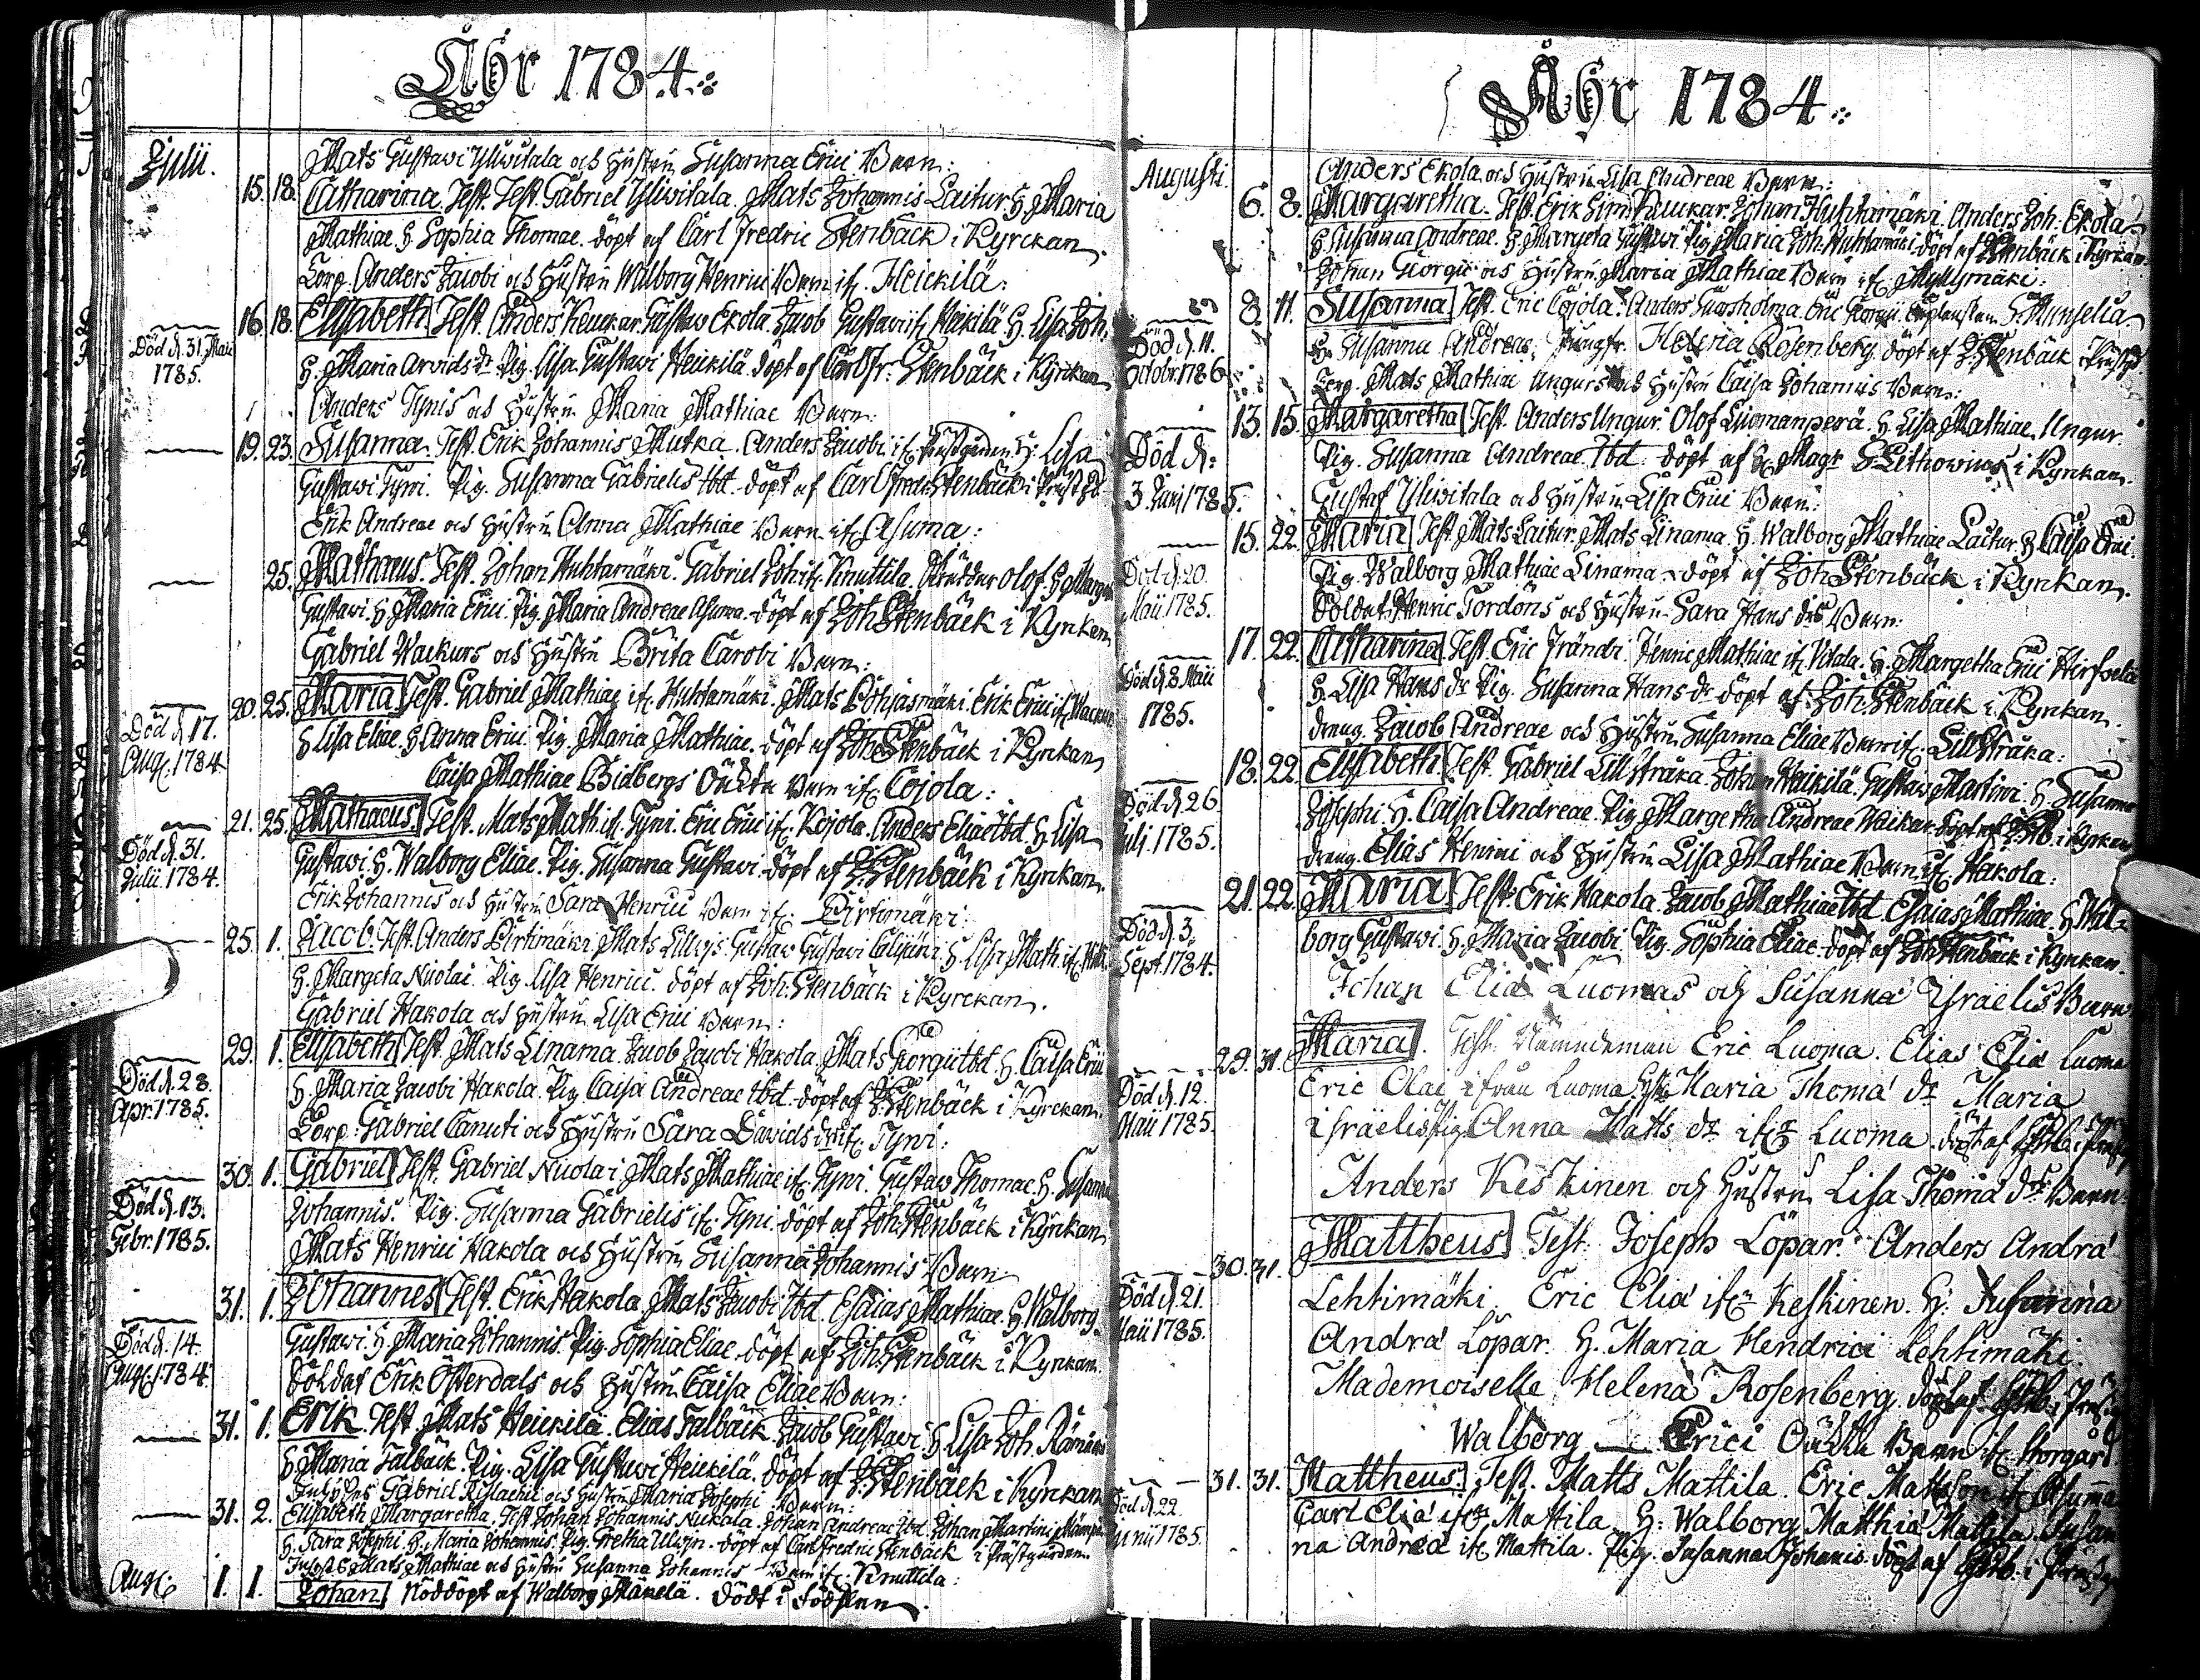 Åhr 1784.
Julii.
Mats Gustavi Yliwitala och Hustru Susanna Erici Barn:
15. 18. Catharina. Test. Gabriel Yliwitala. Mats Johannis Laitur H. Maria
Mathiae H. Sophia Thomae. döpt af Carl Fredric Stenbäck i Kyrckan.
Corp. Anders Jacobi och Hustru Walborg Henrici Barn if. Heickilä:
16. 18. Elisabeth Test. Anders Keuckar. Gustaw Ekola. Jacob Gustavi if. Heikilä H. Lisa Joh.
Död d. 31. Maii 1785.
H. Maria Arvids dr. Pig. Lisa Gustavi Heickilä. döpt af Carl Fr. Stenbäck i Kyrckan
Anders Tynis och Hustru Maria Mathiae Barn:
19. 23. Susanna. Test. Erik Johannis Mutka. Anders Jacobi if. Prästgården H. Lisa
Gustavi Tyni. Pig. Susanna Gabrielis Ibd. döpt af Carl Fredr. Stenbäck i Prästgd.
Erik Andreae och Hustru Anna Mathiae Barn if. Asuma:
25. Mathaeus. Test. Johan Huhtamäki. Gabriel Joh. if. Knuttila. Olof H. Marge
Gustavi H. Maria Erici. Pig. Maria Andreae Asuma. döpt af Joh. Stenbäck i Kyrckan
Gabriel Wackurs och Hustru Brita Carobi Barn:
20. 25. Maria Test. Gabriel Mathiae if. Huhtamäki. Mats Erik Erici if. Wackur
Död d. 17. Aug. 1784
H Lisa Eliae. H Anna Erici. Pig. Maria Mathiae. döpt af Joh. Stenbäck i Kyrckan
Caisa Mathiae Bidbergs Oächta Barn if. Cojola:
21. 25. Mathaeus. Test. Mats Math. if. Tyni. Eric Erici if. Kojola. Anders Eliae Ibd. H Lisa
Död d. 31. Julii 1784.
Gustavi. H. Walborg Eliae. Pig. Susanna Gustavi. döpt af J. Stenbäck i Kyrckan.
Erik Johannis och Hustru Sara Henrici Barn if. Pirtimäki
25. 1. Jacob. Test. Anders Pirtimäki Mats Gustaw Gustavi H. Lisa Math. if.
H. Margeta Nicolai. Pig. Lisa Henrici. döpt af Joh. Stenbäck i Kyrckan.
Gabriel Hakola och Hustru Lisa Erici Barn:
29. 1. Elisabeth Test. Mats Linama. Jacob Jacobi Hakola. Mats Georgii Ibd. H. Caisa Erici
Död d. 28. Apr. 1785.
H. Maria Jacobi Hakola. Pig. Caisa Andreae Ibd. döpt af J. Stenbäck i Kyrckan.
Corp. Gabriel Canuti och Hustru Sara Davids dr if. Tyni:
30. 1. Gabriel Test. Gabriel Nicolai. Mats Mathiae if. Tyni. Gustaw Thomae. H. Susanna
Död d. 13. Febr. 1785.
Johannis. Pig. Susanna Gabrielis if. Tyni. döpt af Joh. Stenbäck i Kyrckan
Mats Henrici Hakola och Hustru Susanna Johannis Barn
31. 1. Johannes Test. Erik Hakola. Mats Jacobi Ibd. Esaias Mathiae. H. Walborg
Död d. 14. Aug. 1784.
Gustavi. H. Maria Johannis. Pig. Sophia Eliae. döpt af Joh. Stenbäck i Kyrckan.
Soldat Erik Österdals och Hustru Caisa Eliae Barn:
31. 1. Erik. Test. Mats Heickilä. Elias Talback Jacob Gustavi H. Lisa Joh.
H. Maria Talback. Pig. Lisa Gustavi Heickilä. döpt af J. Stenbäck i Kyrckan
Gabriel och Hustru Maria Josephi Barn:
31. 2. Elisabeth Margaretha. Test. Johan Johannis Nuckala. Johan Andreae Ibd. Johan Martini
H. Sara Josephi. H. Maria Johannis. Pig. Gretha. döpt af Carl Fredric Stenbäck i Prästgården.
Mats Mathiae och Hustru Susanna Johannis Barn if. Knuttila:
Aug. 1. 1. Johan Nöddöpt af Walborg Mäkelä. Dödt i födslen.
Åhr 1784.
Augusti
Anders Ekola och Hustru Lisa Andreae Barn:
6. 8. Margaretha. Test. Erik Sim. Keuckar. Johan Huhtamäki. Anders Joh. Ekola
H. Susanna Andreae. H. Margeta Gustavi. Pig. Maria Joh. Huhtamäki. döpt af Stenbäck i Kyrckan.
Johan Georgii och Hustru Maria Mathiae Barn if. Myllymäki:
8. 11. Susanna Test. Eric Cojola. Anders Eric Georgii.
Död d. 11. Octobr. 1786
H. Susanna Andreae. Jungfr. Helena Rosenberg. döpt af J. Stenbäck i Prästgd
Corp. Mats Mathiae Ungurs och Hustru Caisa Johannis Barn:
13. 15. Margaretha Test. Anders Ungur. Olof Luomanperä. H. Lisa Mathiae Ungur.
Död d. 3. Juni 1785.
Pig. Susanna Andreae Ibd. döpt af H. Magr G. Lithowius i Kyrckan.
Gustaf Yliwitala och Hustru Lisa Erici Barn:
15. 22. Maria Test. Mats Laitur. Mats Linama. H. Walborg Mathiae Laitur. H Caisa Erici.
Död d. 20. Maii 1785.
Pig. Walborg Mathiae Linama. döpt af Joh. Stenbäck i Kyrckan.
Soldat Henric Tordöns och Hustru Sara Hans drs Barn:
17. 22. Catharina Test. Eric Frändi. Henric Mathiae if. Vitala. H. Margetha Erici
Död d. 8 Maii 1785.
H. Lisa Hans dr Pig. Susanna Hans dr döpt af Joh. Stenbäck i Kyrckan.
dreng. Jacob Andreae och Hustru Susanna Eliae Barn if. Lillstråka:
18. 22. Elisabeth Test. Gabriel Lillstråka. Johan Heickilä. Gustaw Martini. H. Susanna
Död d. 26. Julj. 1785.
Josephi. H. Caisa Andreae. Pig. Margetha Andreae döpt af J. Stb. i Kyrckan
dreng. Elias Henrici och Hustru Lisa Mathiae Barn if. Hakola:
21. 22. Maria Test. Erik Hakola. Jacob Mathiae Ibd. Esaias Mathiae. H Wal-
Död d. 3. Sept. 1784.
borg Gustavi. H. Maria Jacobi. Pig. Sophia Eliae. döpt af Joh. Stenbäck i Kyrckan.
Johan Elia Luomas och Susanna Israelis Barn
29. 31. Maria. Test. Nämndeman Eric Luoma. Elias Elia Luoma
Död d. 12. Maii 1785.
Eric Olai ifrån Luoma. Hstr Maria Thoma dr Maria
Israelis Pig. Anna Matts dr ifr. Luoma. döpt af
Anders Keskinen och Hustru Lisa Thoma drs Barn
30. 31. Mattheus Test. Joseph Löpar. Anders Andra
Död d. 21. Maii 1785.
Lehtimäki. Eric Elia ifr. Keskinen. H: Susanna
Andra Löpar. H. Maria Hendrici Lehtimäki.
Mademoiselle Helena Rosenberg. döpt af
Walborg Erici Oächta Barn if. Norgård
31. 31. Mattheus Test. Matts Mattila. Eric Mattson if. Asuma
Död d. 22 Junii 1785.
Carl Elia ifr. Mattila. H: Walborg Matthia Mattila. Susan
na Andrea if. Mattila. Pig. Susanna Johanis. döpt af